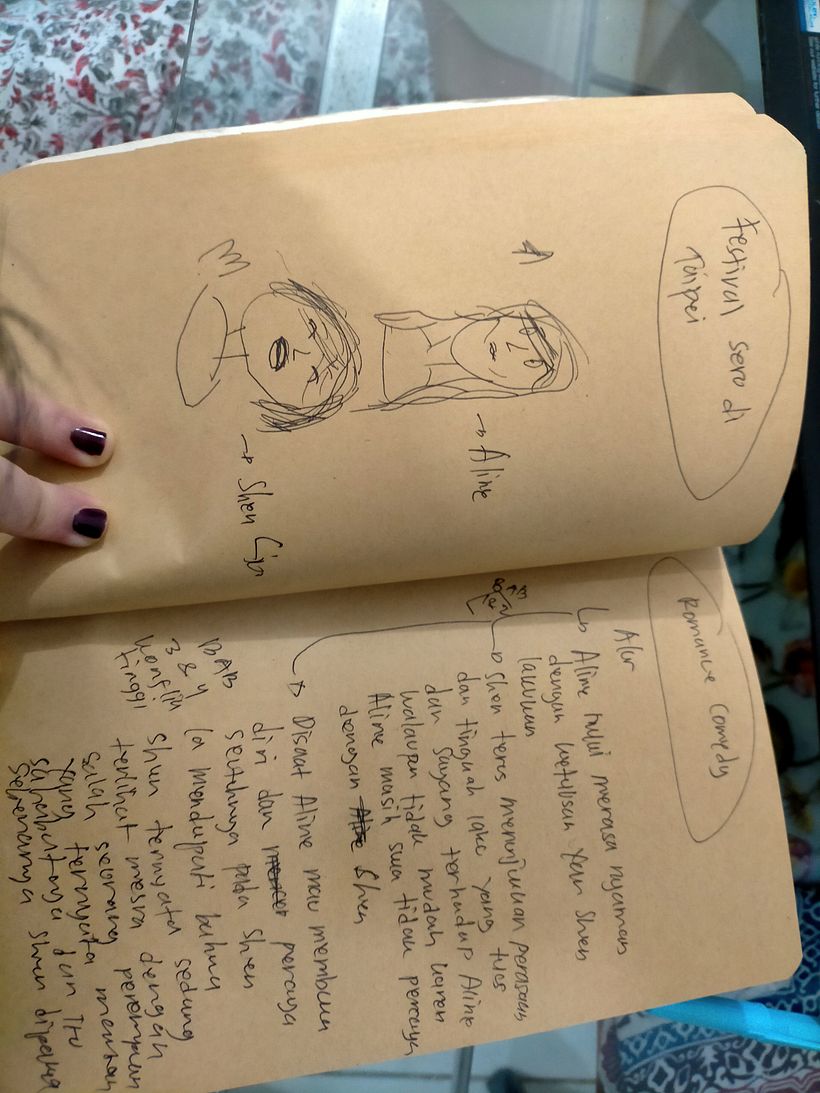 Festival seru di
Taipei
→ Aline
→ Shen
Romance Comedy
Alur
↳ Aline mulai merasa nyaman
dengan ketulusan yan Shen
lakukan
→ Shen terus menunjukan perasaan
dan tingkah laku yang tulus
dan sayang terhadap Aline
walaupun tidak mudah karen
Aline masih sua tidak percaya
dengan Shen
→ Disaat Aline mau membuka
diri dan percaya
seutuhnya pada Shen
BAB
3 & 4
konflik
tinggi
Ia mendapati bahwa
Shen ternyata sedang
terlihat mesra dengan
salah seorang perempuan
yang ternyata mantan
sahabatnya dan itu
sebenarnya Shen dipaksa